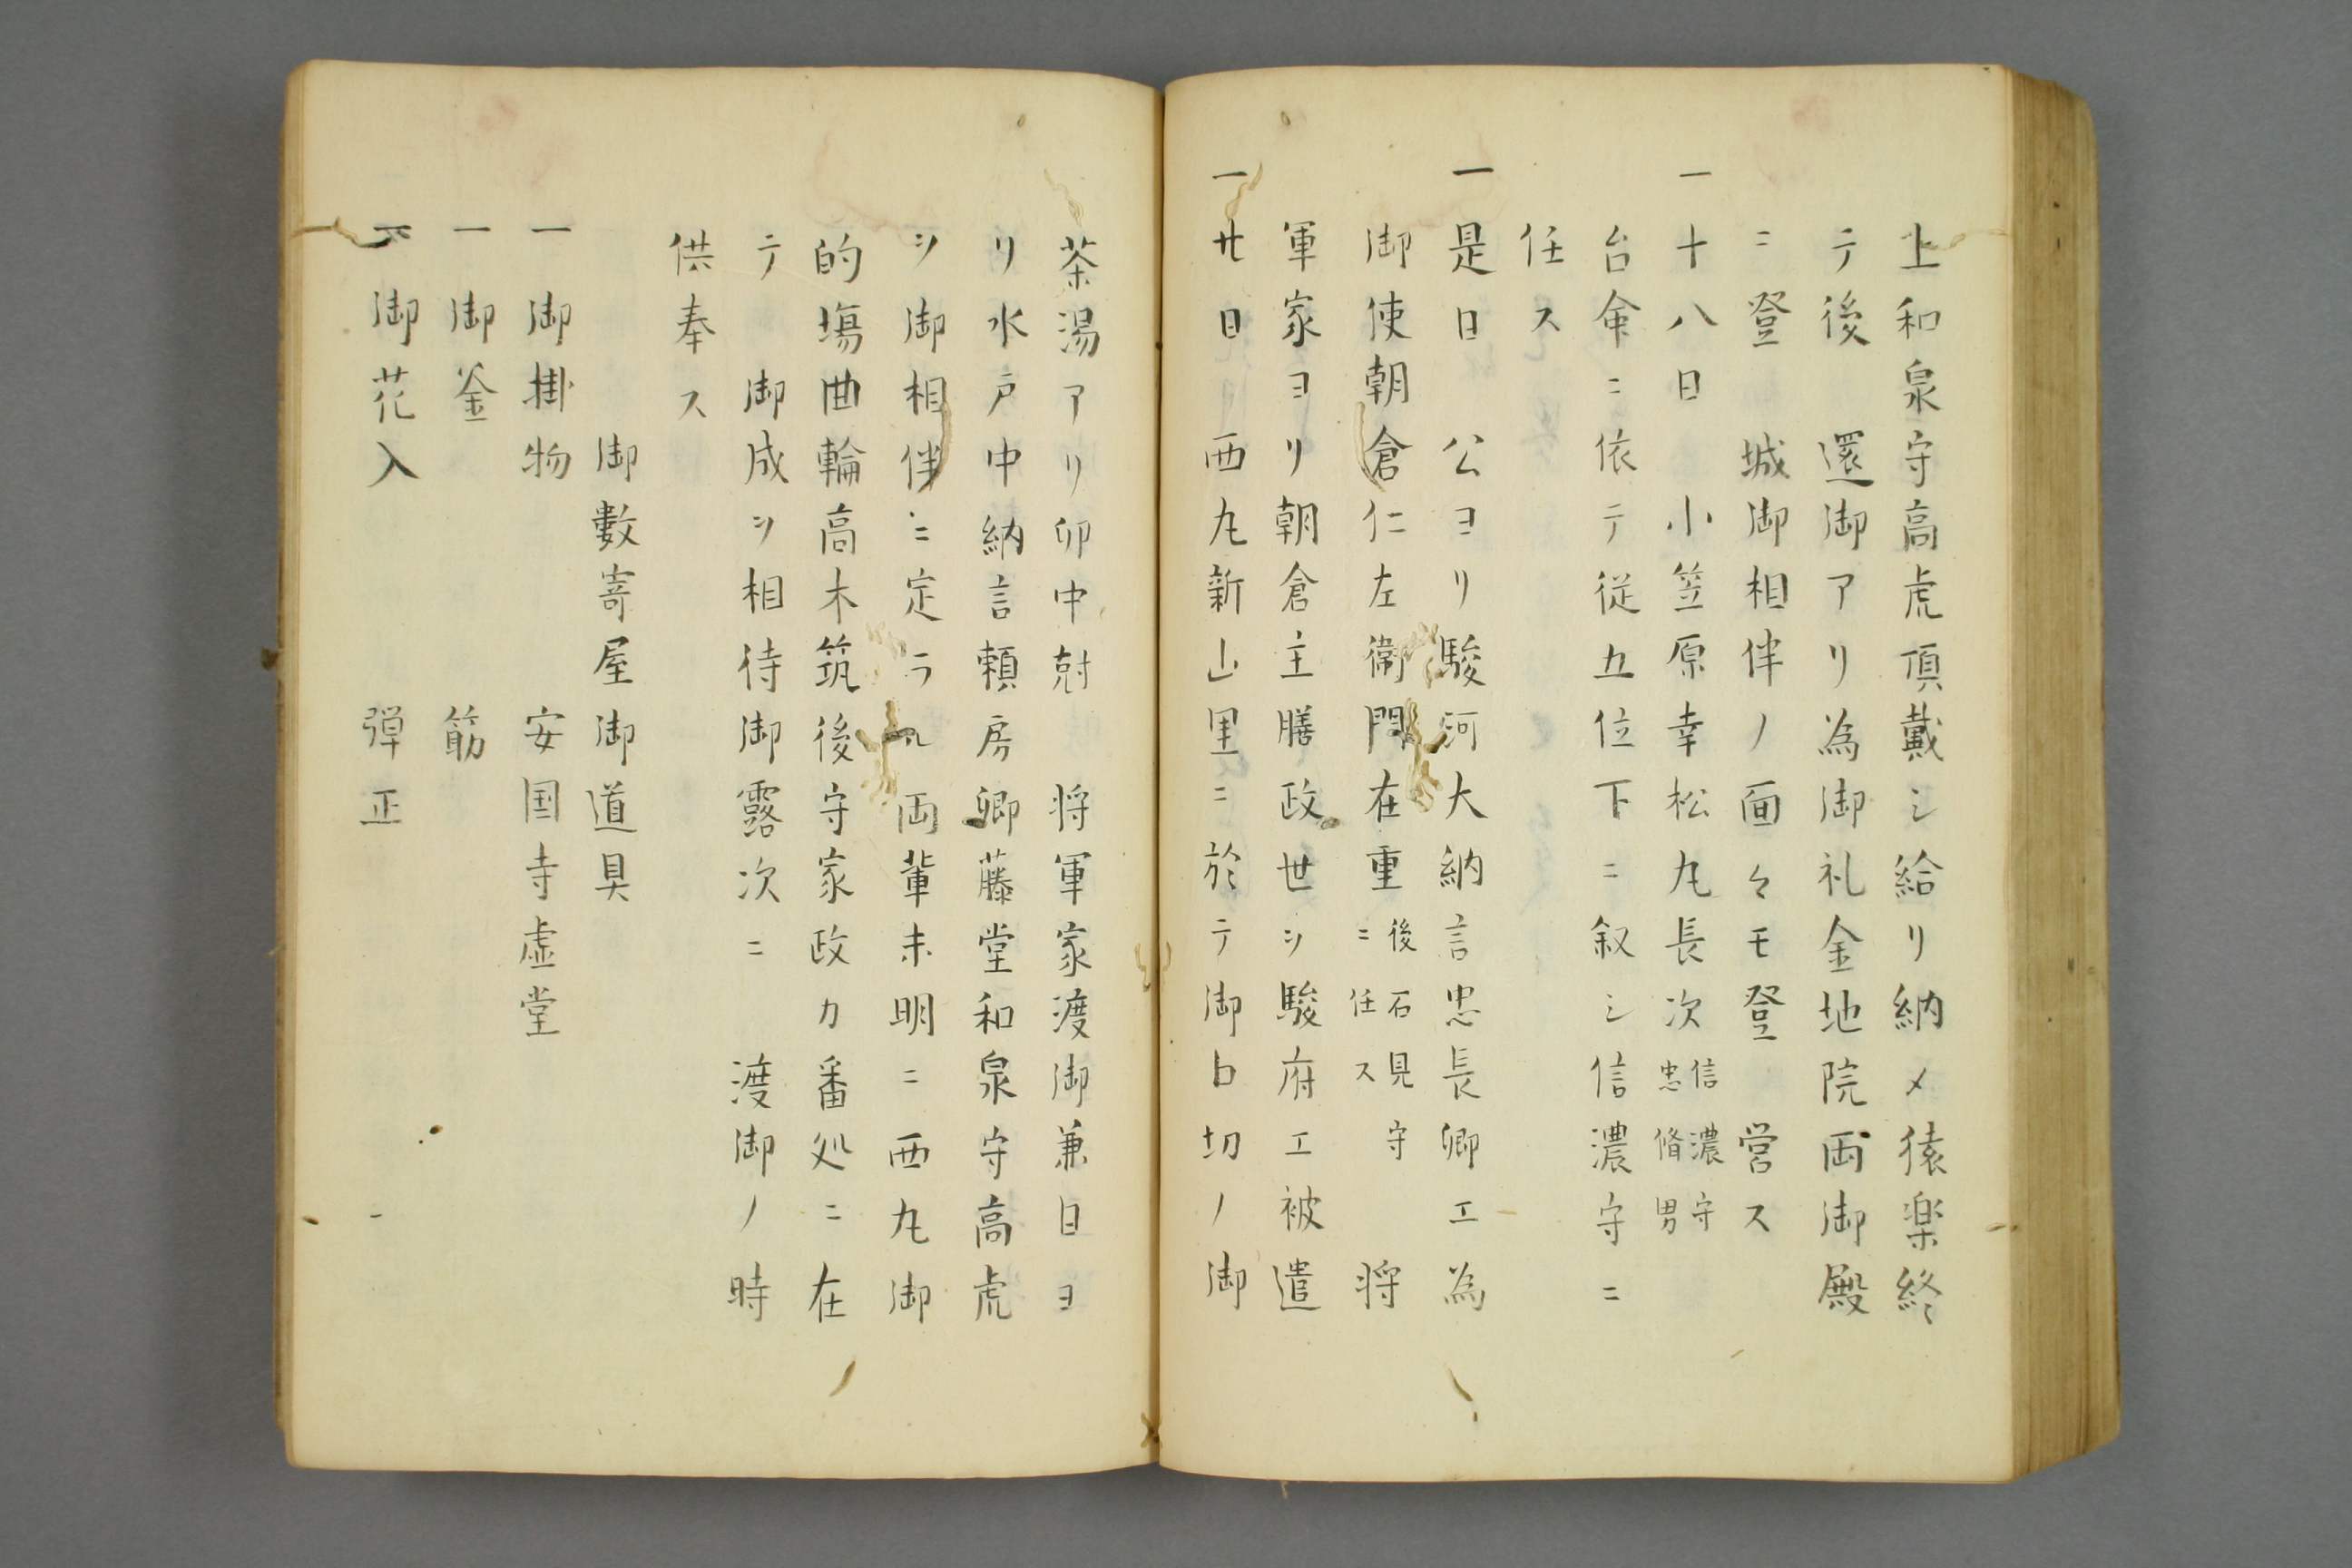 上和泉守高虎頂戴シ給リ納メ猿楽終
テ後　還御アリ為御礼金地院両御殿
ニ登　城御相伴ノ面々モ登　営ス
一十八日　小笠原幸松丸長次信濃守忠脩男
台命ニ依テ従五位下ニ叙シ信濃守ニ
任ス
一是日　公ヨリ駿河大納言忠長卿エ為
御使朝倉仁左衛門在重後石見守ニ任ス　将
軍家ヨリ朝倉主膳政世ヲ駿府エ被遣
一廿日　西丸新山里ニ於テ御口切ノ御
茶湯アリ卯中尅　将軍家渡御兼日ヨ
リ水戸中納言頼房卿藤堂和泉守高虎
ヲ御相伴ニ定ラル両輩未明ニ西丸御
的場曲輪高木筑後守家政カ番処ニ在
テ　御成ヲ相待御露次ニ　渡御ノ時
供奉ス
御數寄屋御道具
一御掛物　安国寺虚堂
一御釜　筋
一御花入　弾正